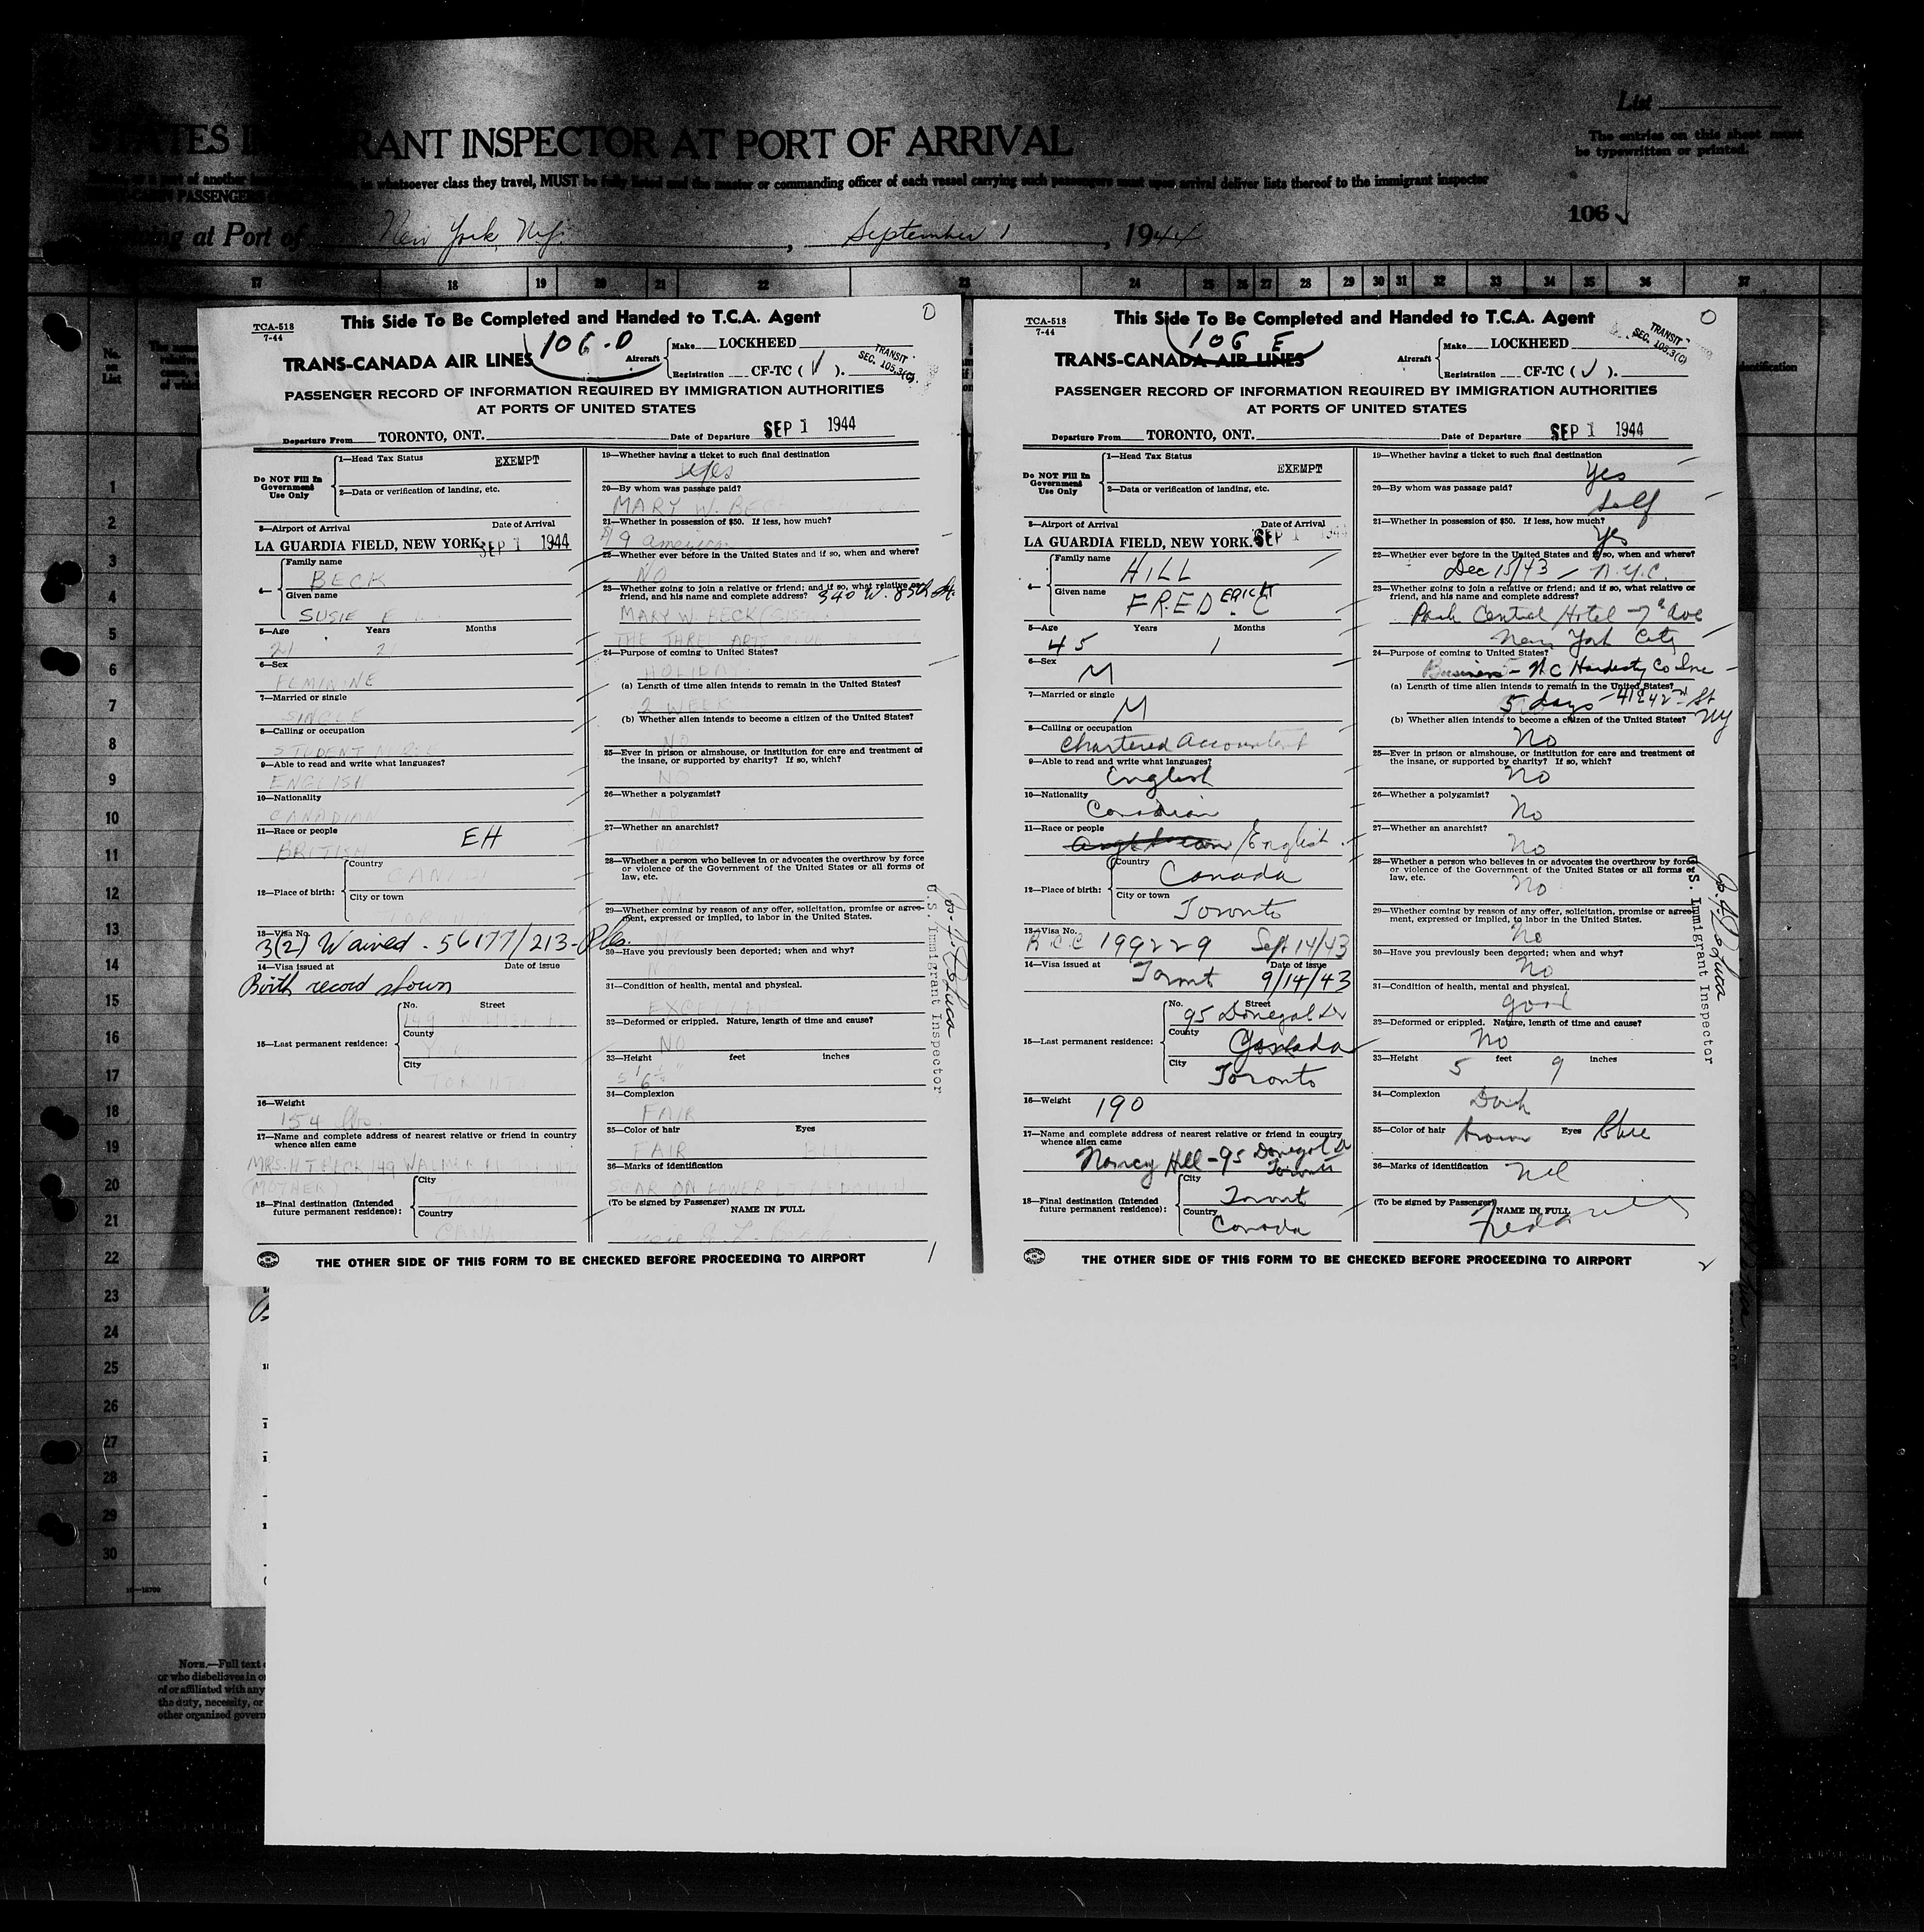 List
STATES
RANT INSPECTOR AT PORT OF ARRIVAL
The entries on this sheet must
be typewritten or printed.
whatsoever class they travel, MUST be fully listed and the master or commanding officer of each vessel carrying such passengers must upon arrival deliver lists thereof to the immigrant inspector
106
at Port of New York, N.Y. , September 1 , 1944
17 18 19 20 21 22 23 24 25 26 27 28 29 30 31 32 33 34 35 36 37
No. on List
1
2
3
4
5
6
7
8
9
10
11
12
13
14
15
16
17
18
19
20
21
22
23
24
25
26
27
28
29
30
TCA-518
7-44
This Side To Be Completed and Handed to T.C.A. Agent
D
106-D
TRANS-CANADA AIR LINES
Aircraft
Make LOCKHEED
Registration CF-TC ( √ ).
TRANSIT
SEC. 105.3(C).
PASSENGER RECORD OF INFORMATION REQUIRED BY IMMIGRATION AUTHORITIES
AT PORTS OF UNITED STATES
Departure From TORONTO, ONT. Date of Departure SEP 1 1944
Do NOT Fill In
Government
Use Only
1—Head Tax Status EXEMPT
2—Data or verification of landing, etc.
3—Airport of Arrival Date of Arrival
LA GUARDIA FIELD, NEW YORK. SEP 1 1944
4—
Family name
BECK
Given name
SUSIE E
5—Age Years Months
21
6—Sex
FEMININE
7—Married or single
SINGLE
8—Calling or occupation
STUDENT NURSE
9—Able to read and write what languages?
ENGLISH
10—Nationality
CANADIAN
11—Race or people EH
BRITISH
12—Place of birth:
Country
City or town
TORONTO
13—Visa No.
3(2) Waived - 56177/213-
14—Visa issued at Date of issue
Birth record shown
15—Last permanent residence:
No. Street
149
County
YORK
City
TORONTO
16—Weight
154 lbs.
17—Name and complete address of nearest relative or friend in country
whence alien came
MRS. H T BECK, 149 WALMER
(MOTHER)
18—Final destination (Intended
future permanent residence):
City
Country
19—Whether having a ticket to such final destination
yes
20—By whom was passage paid?
MARY W. BECK
21—Whether in possession of $50. If less, how much?
$19 american
22—Whether ever before in the United States and if so, when and where?
NO
23—Whether going to join a relative or friend; and if so, what relative or
friend, and his name and complete address? 340 W. 85th St.
MARY W. BECK (SIS
THE THREE ARTS CLUB
24—Purpose of coming to United States?
HOLIDAY
(a) Length of time alien intends to remain in the United States?
2 WEEK
(b) Whether alien intends to become a citizen of the United States?
NO
25—Ever in prison or almshouse, or institution for care and treatment of
the insane, or supported by charity? If so, which?
NO
26—Whether a polygamist?
NO
27—Whether an anarchist?
NO
28—Whether a person who believes in or advocates the overthrow by force
or violence of the Government of the United States or all forms of
law, etc.
NO
29—Whether coming by reason of any offer, solicitation, promise or agree-
ment, expressed or implied, to labor in the United States.
NO
30—Have you previously been deported; when and why?
NO
31—Condition of health, mental and physical.
EXCELLENT
32—Deformed or crippled. Nature, length of time and cause?
NO
33—Height feet inches
5' 6½"
34—Complexion
FAIR
35—Color of hair Eyes
FAIR BLUE
36—Marks of identification
SCAR ON LOWER
(To be signed by Passenger)
NAME IN FULL
U.S. Immigrant Inspector
THE OTHER SIDE OF THIS FORM TO BE CHECKED BEFORE PROCEEDING TO AIRPORT
1
TCA-518
7-44
This Side To Be Completed and Handed to T.C.A. Agent
106 E
TRANS-CANADA AIR LINES
Aircraft
Make LOCKHEED
Registration CF-TC ( √ ).
TRANSIT
SEC. 105.3(C)
PASSENGER RECORD OF INFORMATION REQUIRED BY IMMIGRATION AUTHORITIES
AT PORTS OF UNITED STATES
Departure From TORONTO, ONT. Date of Departure SEP 1 1944
Do NOT Fill In
Government
Use Only
1—Head Tax Status EXEMPT
2—Data or verification of landing, etc.
3—Airport of Arrival Date of Arrival
LA GUARDIA FIELD, NEW YORK. SEP 1 1944
4—
Family name
HILL
Given name
FRED ERICK
5—Age Years Months
45 1
6—Sex
M
7—Married or single
M
8—Calling or occupation
Chartered Accountant
9—Able to read and write what languages?
English
10—Nationality
Canadian
11—Race or people
/English
12—Place of birth:
Country
Canada
City or town
Toronto
13—Visa No.
R.C.C 199229 Sept 14/43
14—Visa issued at Date of issue
Toront 9/14/43
15—Last permanent residence:
No. Street
95 Donegal Dr
County
City
Toronto
16—Weight
190
17—Name and complete address of nearest relative or friend in country
whence alien came
Nancy Hill - 95 Donegal Dr
Toronto
18—Final destination (Intended
future permanent residence):
City
Toront
Country
Canada
19—Whether having a ticket to such final destination
Yes
20—By whom was passage paid?
Self
21—Whether in possession of $50. If less, how much?
Yes
22—Whether ever before in the United States and if so, when and where?
Dec 15/43 - N.Y.C
23—Whether going to join a relative or friend; and if so, what relative or
friend, and his name and complete address?
Park Central Hotel - 7th Ave
New York City
24—Purpose of coming to United States?
Business - W C Hardesty Co Inc
(a) Length of time alien intends to remain in the United States?
5 days - 41 E 42nd St
NY
(b) Whether alien intends to become a citizen of the United States?
No
25—Ever in prison or almshouse, or institution for care and treatment of
the insane, or supported by charity? If so, which?
No
26—Whether a polygamist?
No
27—Whether an anarchist?
No
28—Whether a person who believes in or advocates the overthrow by force
or violence of the Government of the United States or all forms of
law, etc.
No
29—Whether coming by reason of any offer, solicitation, promise or agree-
ment, expressed or implied, to labor in the United States.
No
30—Have you previously been deported; when and why?
No
31—Condition of health, mental and physical.
good
32—Deformed or crippled. Nature, length of time and cause?
No
33—Height feet inches
5 9
34—Complexion
Dark
35—Color of hair Eyes
brown Blue
36—Marks of identification
nil
(To be signed by Passenger)
NAME IN FULL
U.S. Immigrant Inspector
THE OTHER SIDE OF THIS FORM TO BE CHECKED BEFORE PROCEEDING TO AIRPORT
2
NOTE.—Full text
or who disbelieves in
of or affiliated with any
the duty, necessity, or
other organized govern